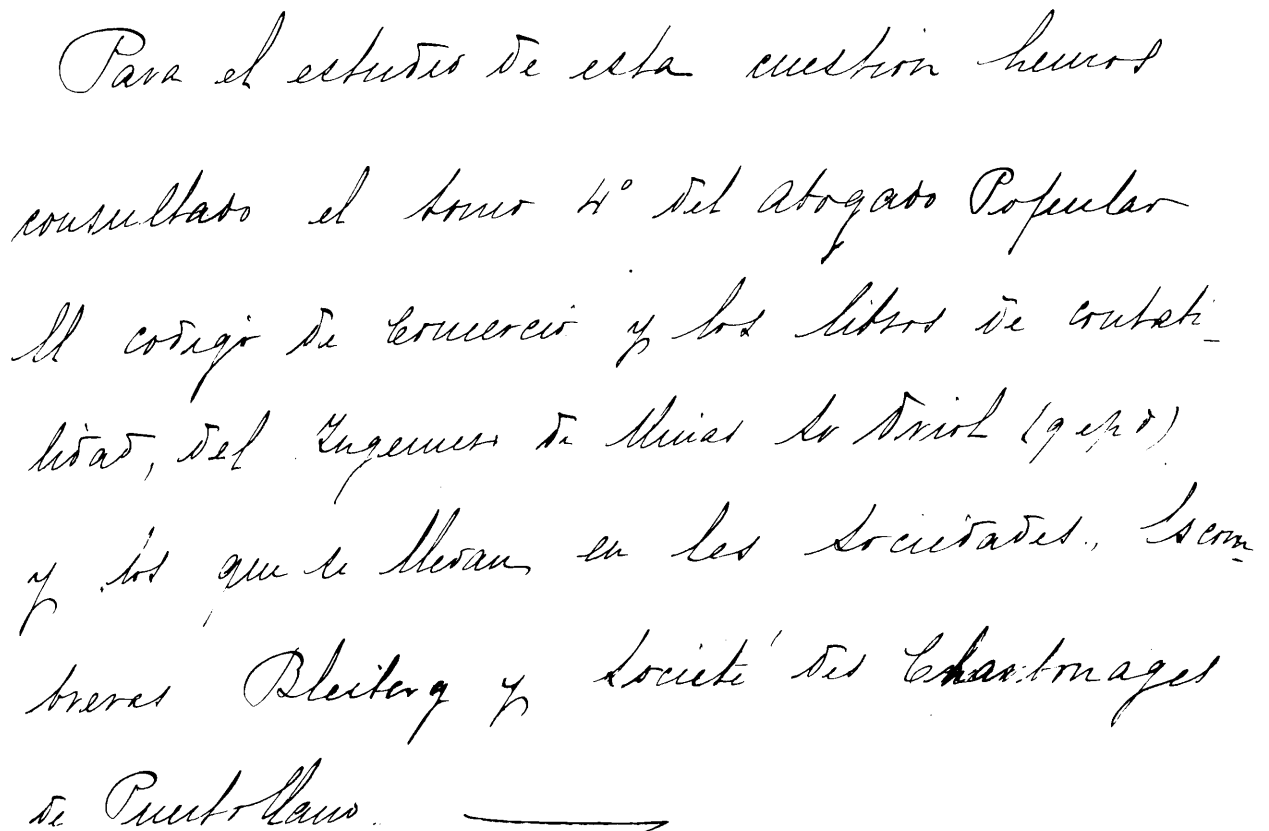 Para el estudio de esta cuestion hemos
consultado el tomo 4º del Abogado Popular
El codigo de Comercio y los libros de contabi-
lidad, del Ingeniero de Minas Sr Oriol (q e p d)
y los que se llevan en las Sociedades, Escom-
breras Bleiberg y Societé des Charbonages
de Puertollano.